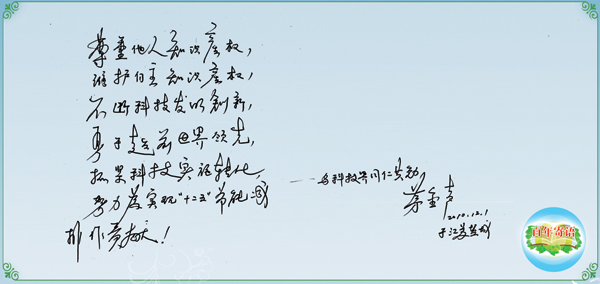 尊重他人知识产权,
维护自主知识产权,
不断科技发明创新,
勇于超前世界领先,
科技实证转化,
努力为实现“十二五”节能减
排作贡献!
——与科技界同仁共勉
2010.12.1
于江苏盐城
百年寄语